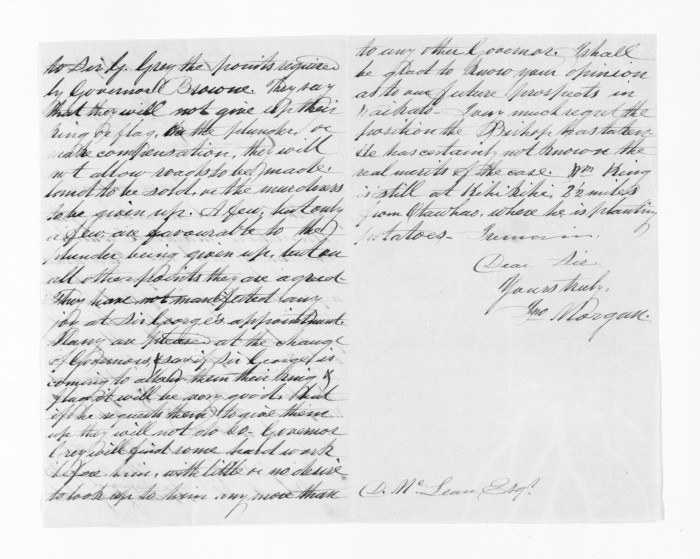 to Sir G. Grey the points required
by Governor Browne. They say
that they will not give up their
king or flag, or the plunder, or
make compensation, they will
not allow roads to be made,
land to be sold, or the murderers
to be given up. A few, but only
a few are favourable to the
plunder being given up, but on
all other points they are agreed.
They have not manifested any
joy at Sir George's appointment.
Many are pleased at the change
of Governors, & say if Sir George is
coming to allow them their king &
flag it will be very good, but
if he requests them to give them
up they will not do so. Governor
Grey will find some hard work
before him, with little or no desire
to look up to him any more than
to any other Governor. I shall
be glad to know your opinion
as to our future prospects in
Waikato. I very much regret the
position the Bishop has taken.
He has certainly not known the
real merits of the case. Wm King
is still at Kihikihi, 2½ miles
from Otawhao, where he is planting
potatoes. I remain,
Dear Sir
Yours truly,
Jno Morgan.
D. McLean Esqr.